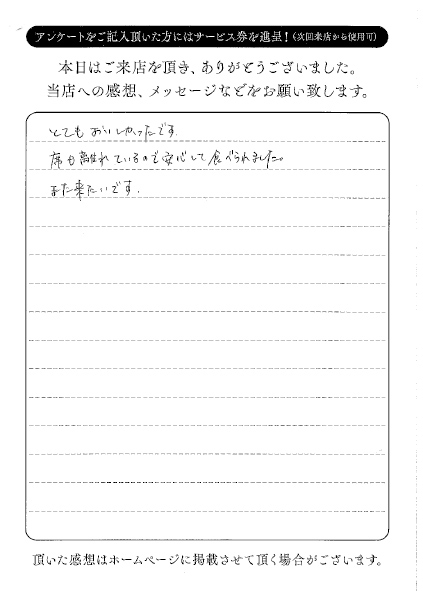 アンケートをご記入頂いた方にはサービス券を進呈！(次回来店から使用可)
本日はご来店を頂き、ありがとうございました。
当店への感想、メッセージなどをお願い致します。
とてもおいしかったです.
席も離れているので安心して食べられました。
また来たいです.
頂いた感想はホームページに掲載させて頂く場合がございます。